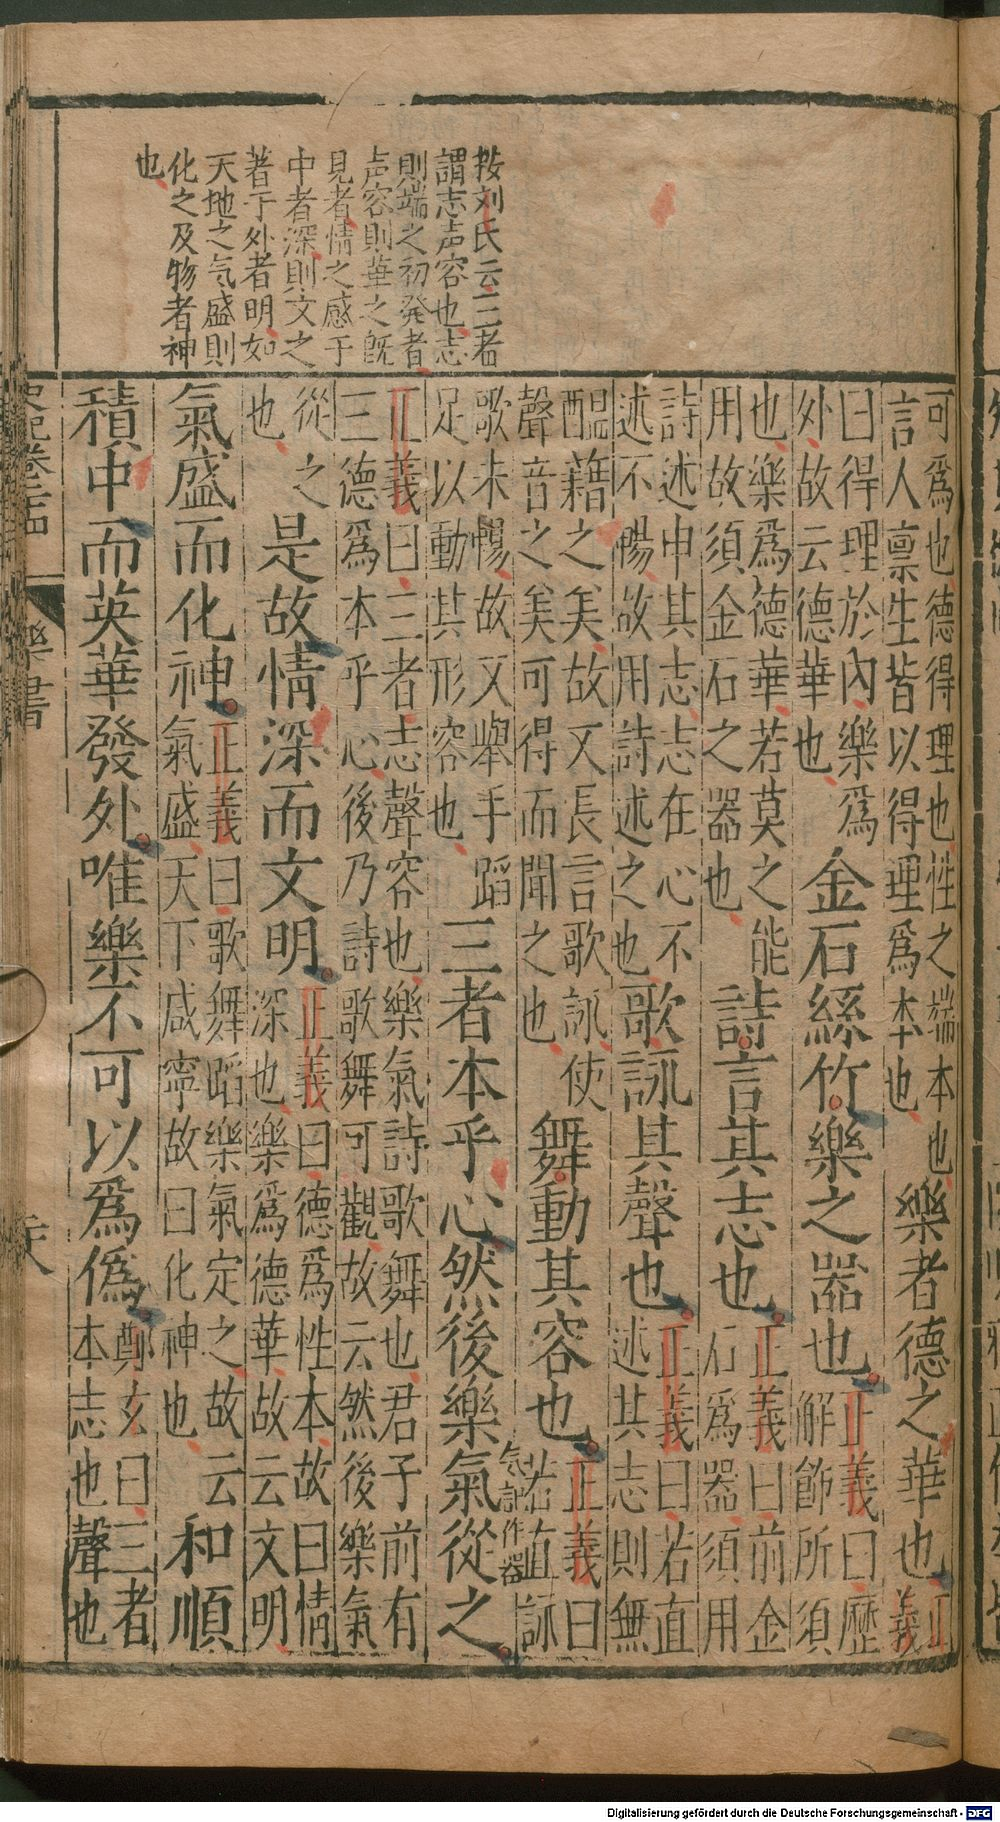 按刘氏云三者
謂志声容也志
則端之初発者
声容則華之既
見者情之感于
中者深則文之
著于外者明如
天地之气盛則
化之及物者神
也
可為也德得理也性之端本也
言人禀生皆以得理為本也
樂者德之華也
正
義
曰得理於內樂為
外故云德華也
金石絲竹樂之器也
正義曰歷
解飾所須
也樂為德華若莫之能
用故須金石之器也
詩言其志也
正義曰前金
石為器須用
詩述申其志志在心不
述不暢故用詩述之也
歌詠其聲也
正義曰若直
述其志則無
醖藉之美故又長言歌詠使
聲音之美可得而聞之也
舞動其容也
正義曰
若直詠
歌未暢故又舉手蹈
足以動其形容也
三者本乎心然後樂氣從之
气記作器
正義曰三者志聲容也樂氣詩歌舞也君子前有
三德為本乎心後乃詩歌舞可觀故云然後樂氣
從之
也
是故情深而文明
正義曰德為性本故曰情
深也樂為德華故云文明
氣盛而化神
正義曰歌舞蹈樂氣定之故云
氣盛天下咸寧故曰化神也
和順
積中而英華發外唯樂不可以為偽
鄭玄曰三者
本志也聲也
樂書
Digitalisierung gefördert durch die Deutsche Forschungsgemeinschaft - DFG